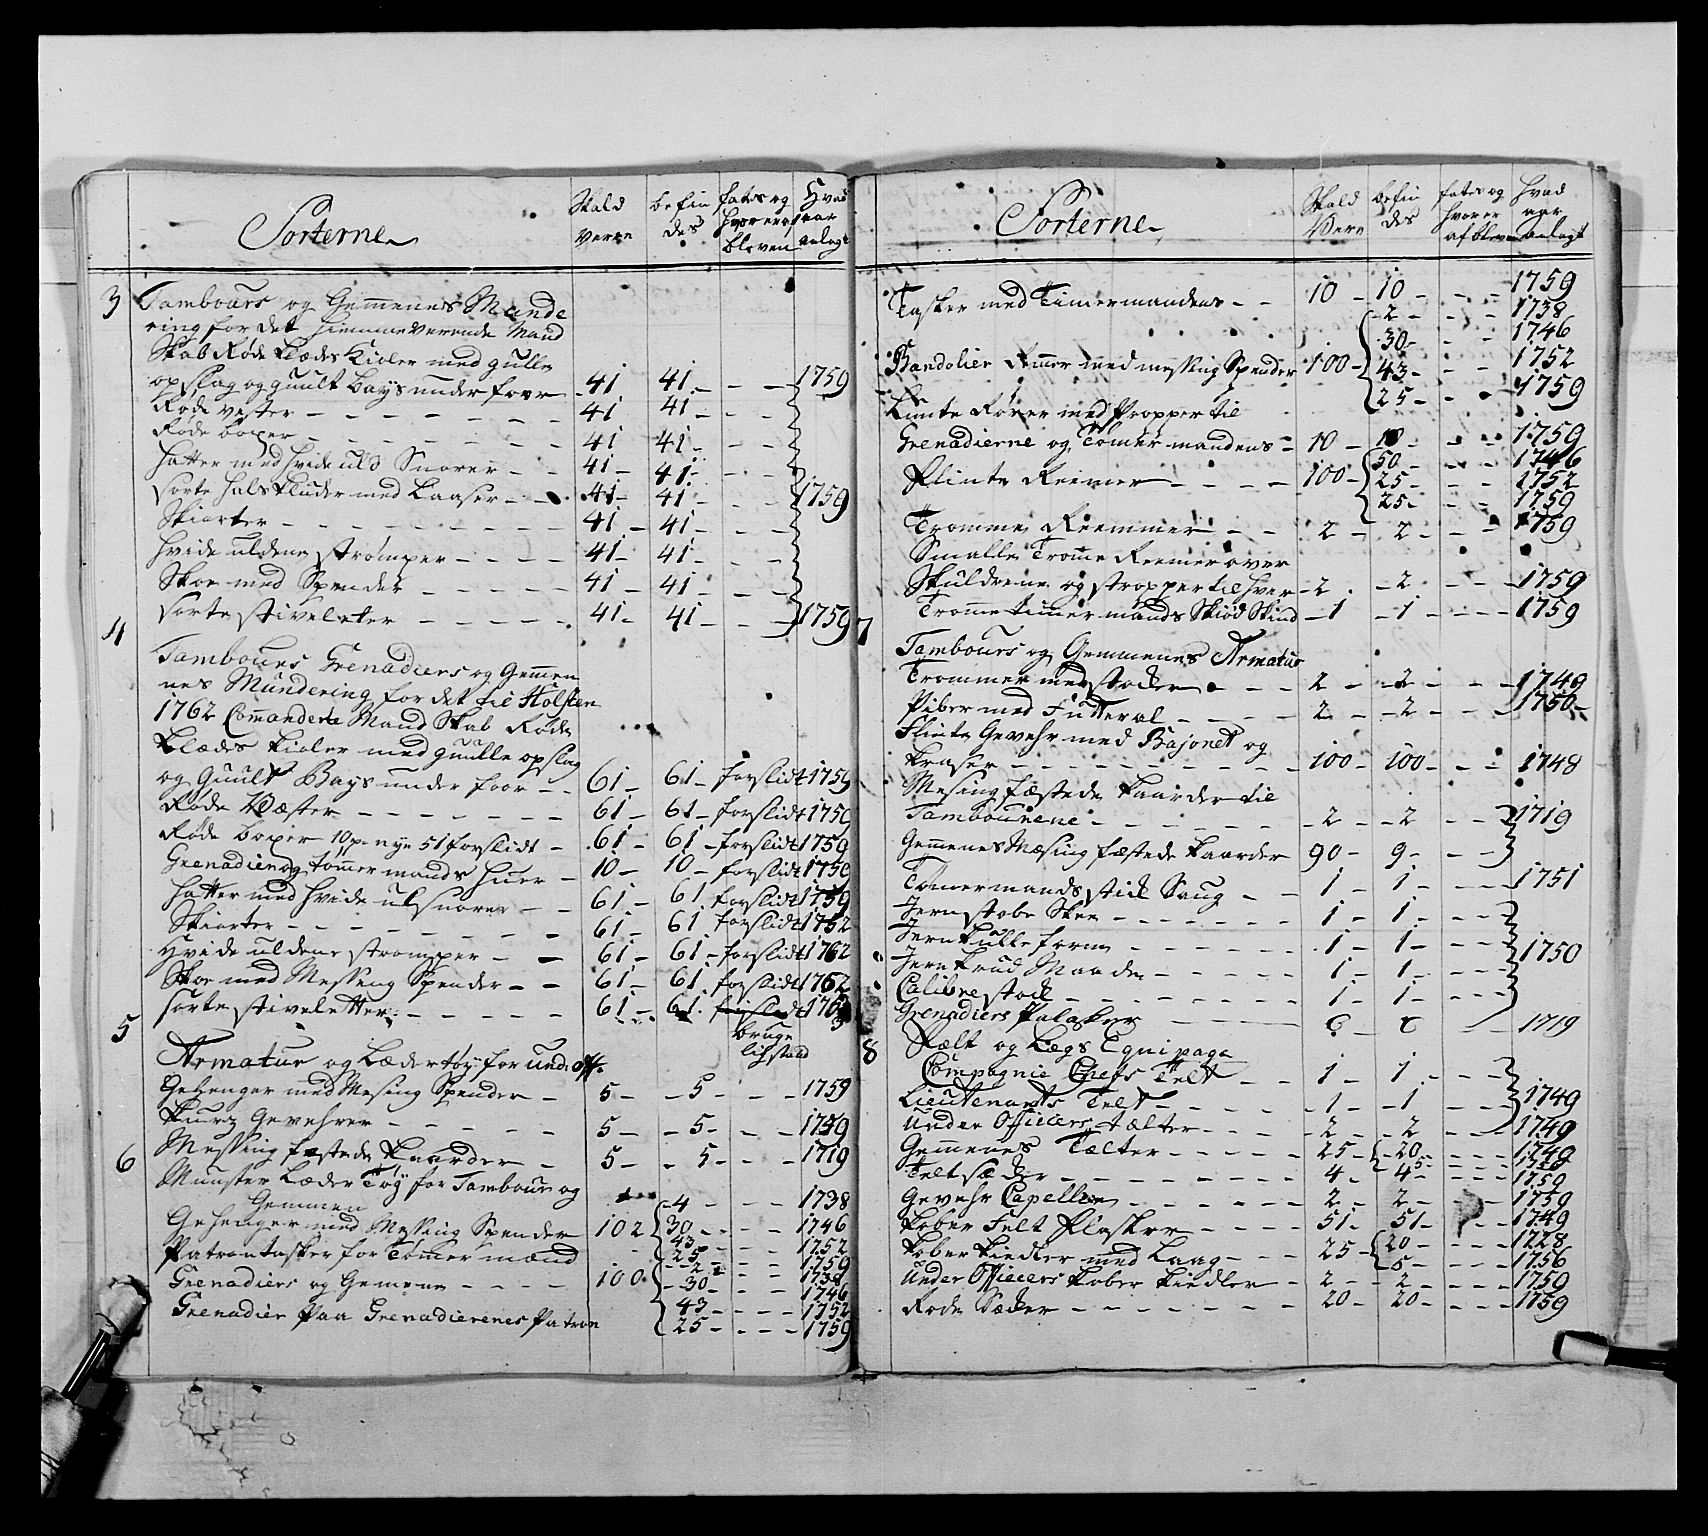 Sorterne
Skald
Være
befin
des
fates og
hvor er
bleven
Hvad
aar
anlagt
3 Tambours og Gemenes Munde
ring for det hiemmeværende Mand
Skab Røde Klædes Kioler med gulle
opslag og guult Bays under foor - 41 41 - - - 1759
Røde vester - - - - 41 41 - - -
Røde boxer - - - - 41 41 - - -
Hatter med hvide uld Snorer - - 41 - 41 - - -
sorte halsklüder med Laaser - - 41 - 41 - - - 1759
Skiorter - - - - 41 - 41 - - -
hvide uldene strømper - - - - 41 - 41 - - -
Skoe med Spender - - - - 41 - 41 - - -
sorte stiveleter - - - - 41 - 41 - - - 1759
4 Tambours Grenadiers og Gemen
nes Mundering for det til Holsten
1762 Commanderte Mand Skab Røde
Klædes kioler med guulle opslag
og Guult Bays under foor - - 61 - 61 - forslidt 1759
Røde Wæster - - - - 61 - 61 - forslidt 1759
Røde boxer 10 p. nye 51 forslidt - 61 - 61 - forslidt 1759
Grenadier og tømmermands huer - 10 - 10 - forslidt 1750
hatter med hvide ul snorer - - 61 - 61 forslidt 1759
Skiorter - - - - 61 - 61 forslidt 1762
Hvide uldene strømper - - 61 - 61 - forslidt 1762
Skoe med Messeng Spender - - 61 - 61 forslidt 1762
sorte stiveletter - - - - 61 - 61
bruge
lig stand
5 Armatur og Lædertøy for under off.
Gehenger med Mesing Spender - 5 - - 5 - - - 1759
Kurz Gevehrer - - - - 5 - - 5 - - - 1749
Messing fæstede kaarder - 5 - - 5 - - - 1719
6 Munster Læder Tøy for Tambour og
Gemmen
Gehenger med Messing Spender 102 4 - - - 1738
30 - - - 1746
43 - - - 1752
25 - - - 1759
Patrontasker for Tømermænd
Grenadiers og Gemene - - - - 100 - 2 - - - 1738
30 - - - 1746
43 - - - 1752
25 - - - 1759
Grenadier paa Grenadierenes Patron
Sorterne
Skald
Være
befin
des
fates og
hvor er
af bleven
hvad
aar
anlagt
Tasker med Timermandens - - 10 - 10 - - - 1759
Bandolier Remer med messing Spender 100 - 2 - - - 1738
30 - - - 1746
43 - - - 1752
25 - - - 1759
Lunte Rører med Propper til
Grenadierne og Tømermandens - 10 - 10 - - - 1759
Flinte Reemer - - - - 100 - 50 - - - 1746
25 - - - 1752
25 - - - 1759
Tromme Reemmer - - - 2 - 2 - - - 1759
Smalle Trome Reemer over
Skuldrene og stropper til hver - 2 - 2 - - - 1759
Tromme timmermands Skiød Skind - 1 - 1 - - - 1759
7 Tambours og Gemmenes Armatur
Trommer med stoker - - - 2 - - 2 - - - 1749
Piber med Futteral - - - - 2 - - 2 - - - 1750 -
Flinte Gevehr med Bajonet og
kraser - - - - 100 - 100 - - - 1748
Mesing fæstede kaarder til
Tambourene - - - - 2 - - 2 - - - 1719
Gemenes Mæsing fæstede kaarder 90 - 9 - - -
Tømermands stik Saug - - 1 - 1 - - - 1751
Jern støbe Skee - - - - 1 - 1 - - -
Jern kulle form - - - - 1 - 1 - - - 1750
Jern krud Maade - - - - 1 - 1 - - -
Calibre stok - - - - 1 - 1 - - -
Grenadiers Palasker - - - 1719
8 Fælt og Legs Equipage
Compagnie Chefs Telt - - 1 - 1 - - -
Lieutenants Telt - - - - 1 - - 1 - - - 1749
Under Officiers tælter - - - - 2 - - 2 - - - 1749
Gemenes Tælter - - - - 25 - 20 - - - 1749
5 - - -
Telt sæder - - - - 4 - 4 - - - 1759
Gevehr Capeller - - - - 2 - 2 - - 1759
kober Felt Flasker - - - - 51 - 51 - - 1749
kober kiedler med Laag - - - 25 - 20 - - - 1728
5 - - - 1756
Under Officiers kober kiedler - 2 - - 2 - - - 1750
Røde Sæder - - - - 20 - 20 - - - 1759